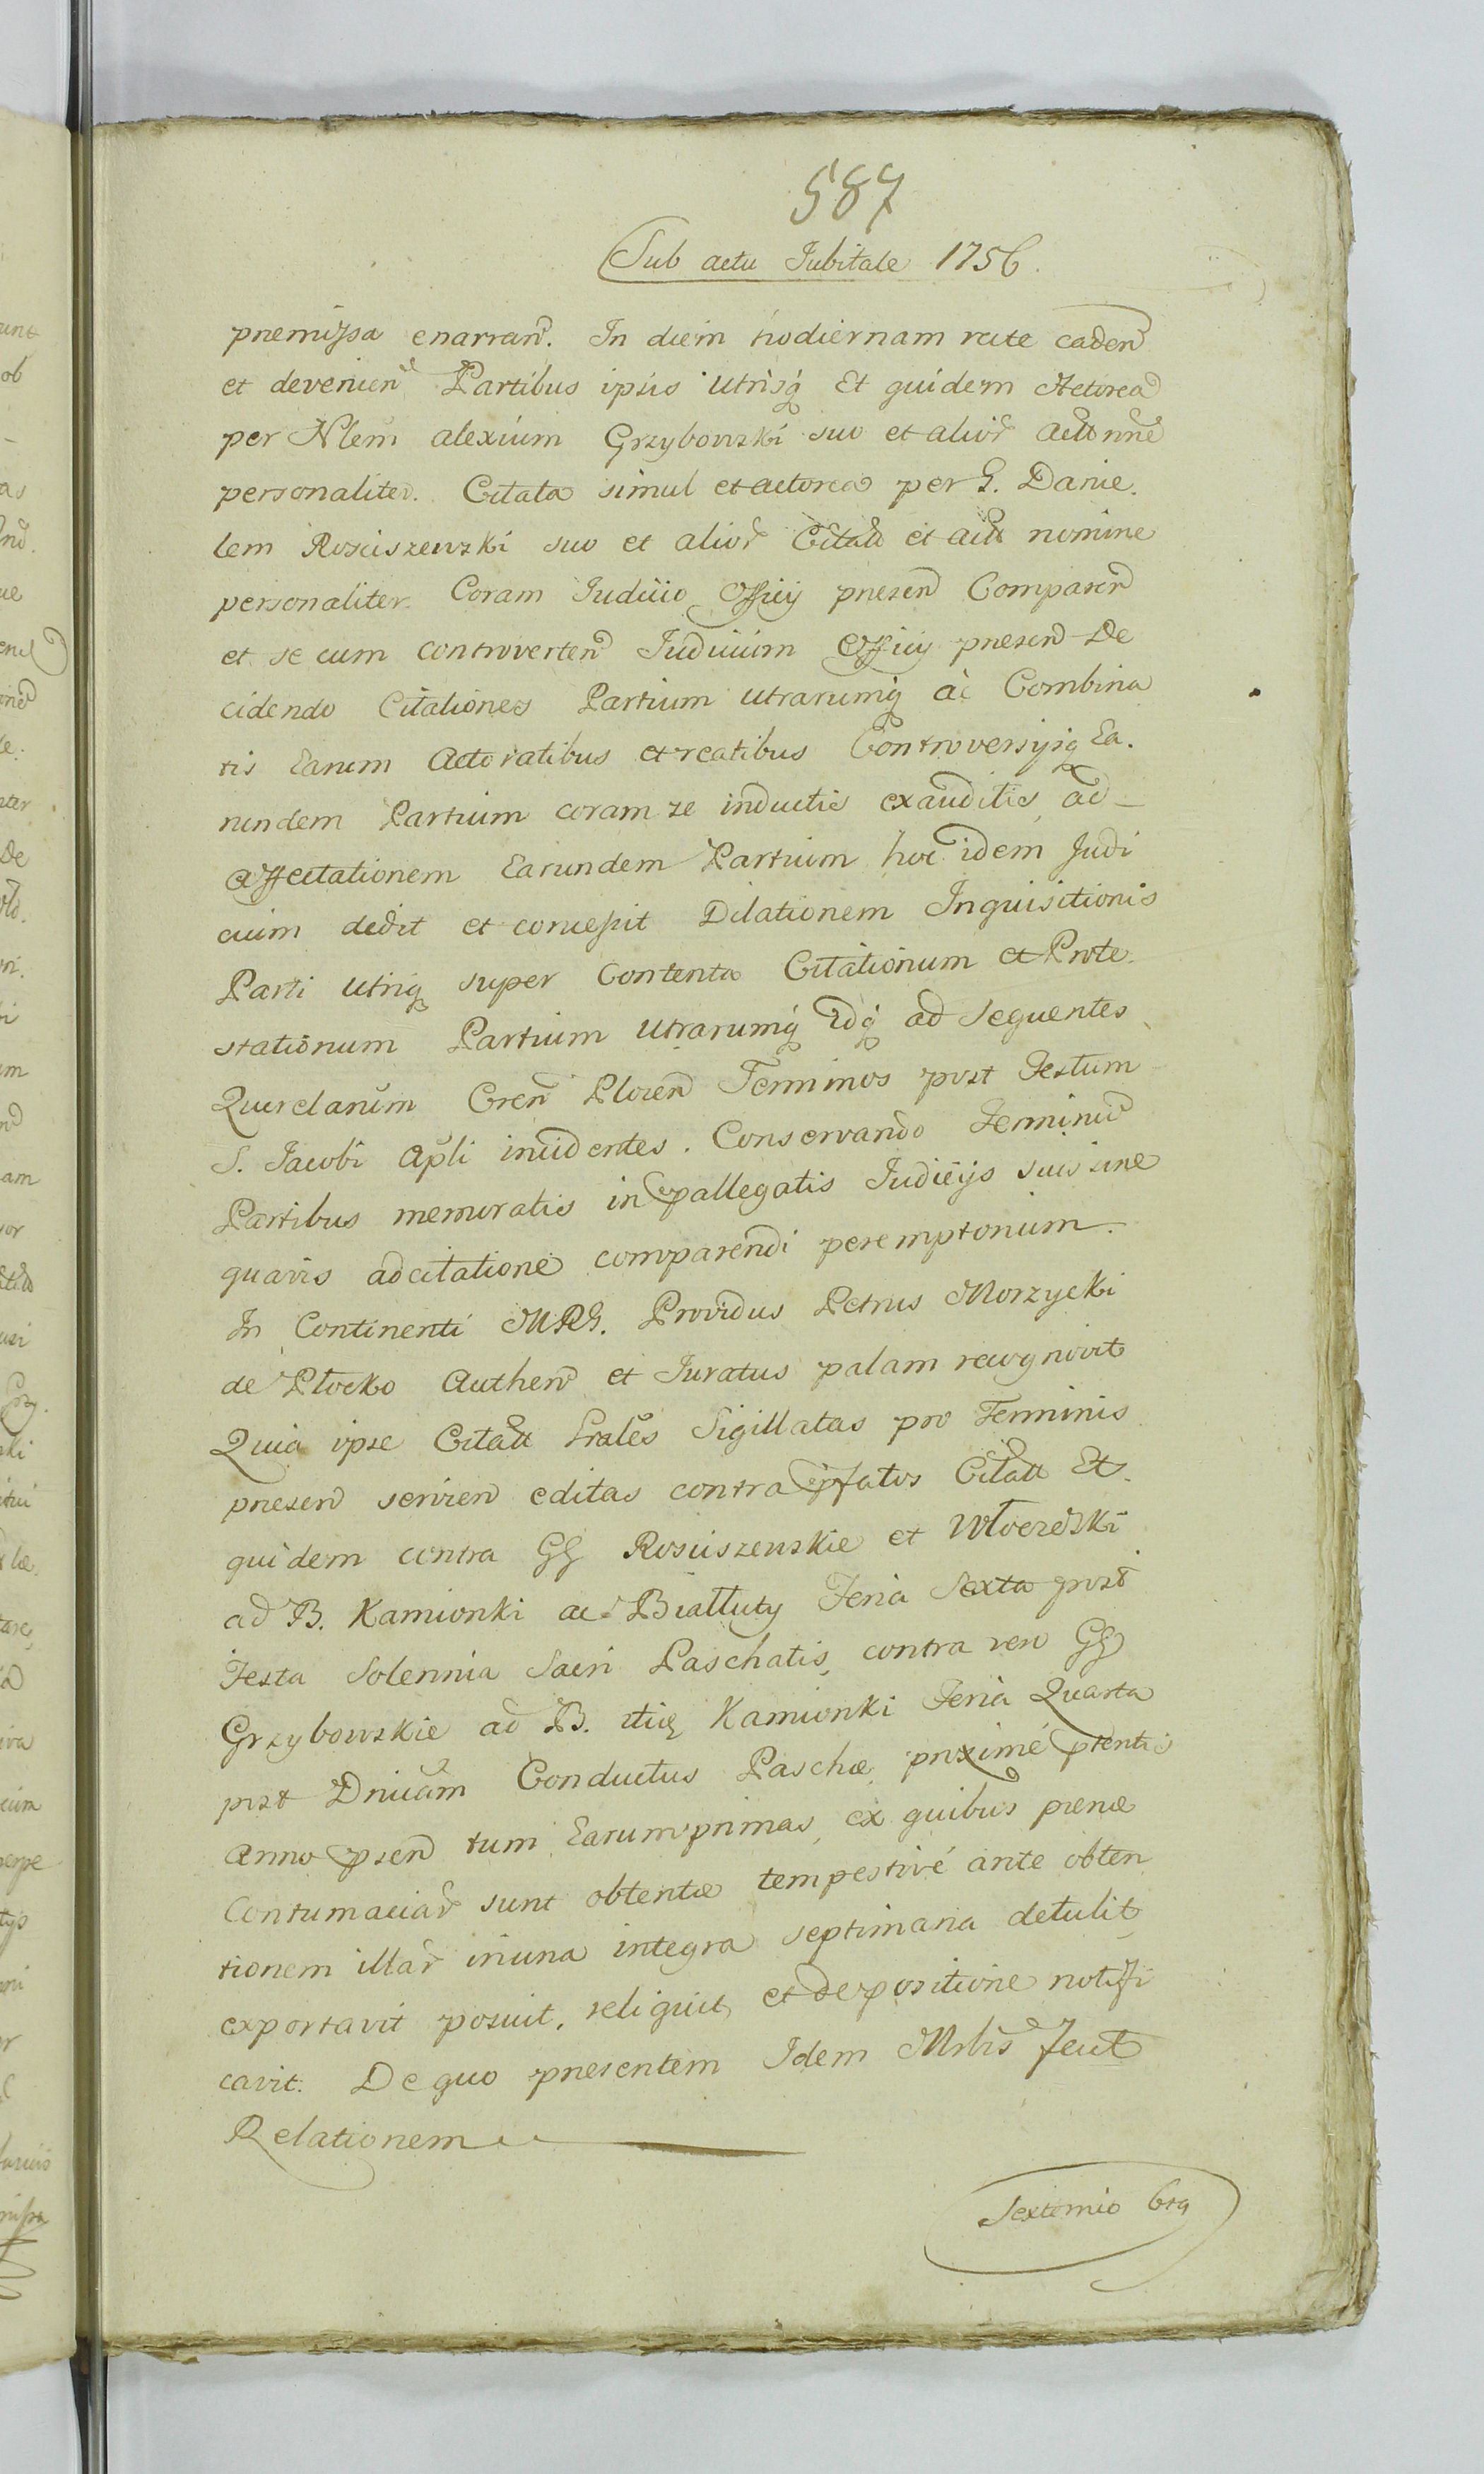 587
Sub actu Jubilate 1756.
premissa enarran. In diem hodiernam rite caden
et devenien Partibus ipsis utrisq Et quidem Actorea
per Nlem alexium Grzybowski suo et alior actor nne
personaliter. Citata simul et actorea per G. Danie.
lem Rosciszewski suo et alior Citat et act nomine
personaliter. Coram Judicio Officij presen Comparen
et se cum controverten Judicium Officij presen De
cidendo Citationes Partium utrarumq ac Combina
tis Earum Actoratibus et reatibus Controversijsq Ea.
rundem Partium coram se inductis exauditis, ad
affectationem Earundem Partium hoc idem Judi
cium dedit et concessit Dilationem Inquisitionis
Parti utriq super Contenta Citationum et Prote.
stationum Partium utrarumq idq ad sequentes
Querelarum Gren Plocen Terminos post Festum
S. Jacobi Apli incidentes. Conservando Terminu
Partibus memoratis in pallegatis Judicijs suis sine
quavis adcitatione comparendi peremptorium.
In Continenti MRG. Providus Petrus Morzycki
de Plocko Authen et Juratus palam recognovit
Quia ipse Citatt Lrales Sigillatas pro Terminis
presen servien editas contra pfatos Citatt Et
quidem contra GG Rosciszewskie et Wloczewski
ad B. Kamionki ac Biallуty Feria Sexta post
Festa Solennia Sacri Paschatis, contra vero GG
Grzybowskie ad B. itiq Kamionki Feria Quarta
post Dnicam Conductus Paschæ, proxime ptentis
Anno psen tum Earum primas, ex quibus pœnæ
Contumaciar sunt obtentæ tempestivé ante obten
tionem illar in una integra septimana detulit
exportavit posuit, reliquit, et de positione notifi
cavit. De quo presentem Idem Mrlis fecit
Relationem
Sexternio 6ta